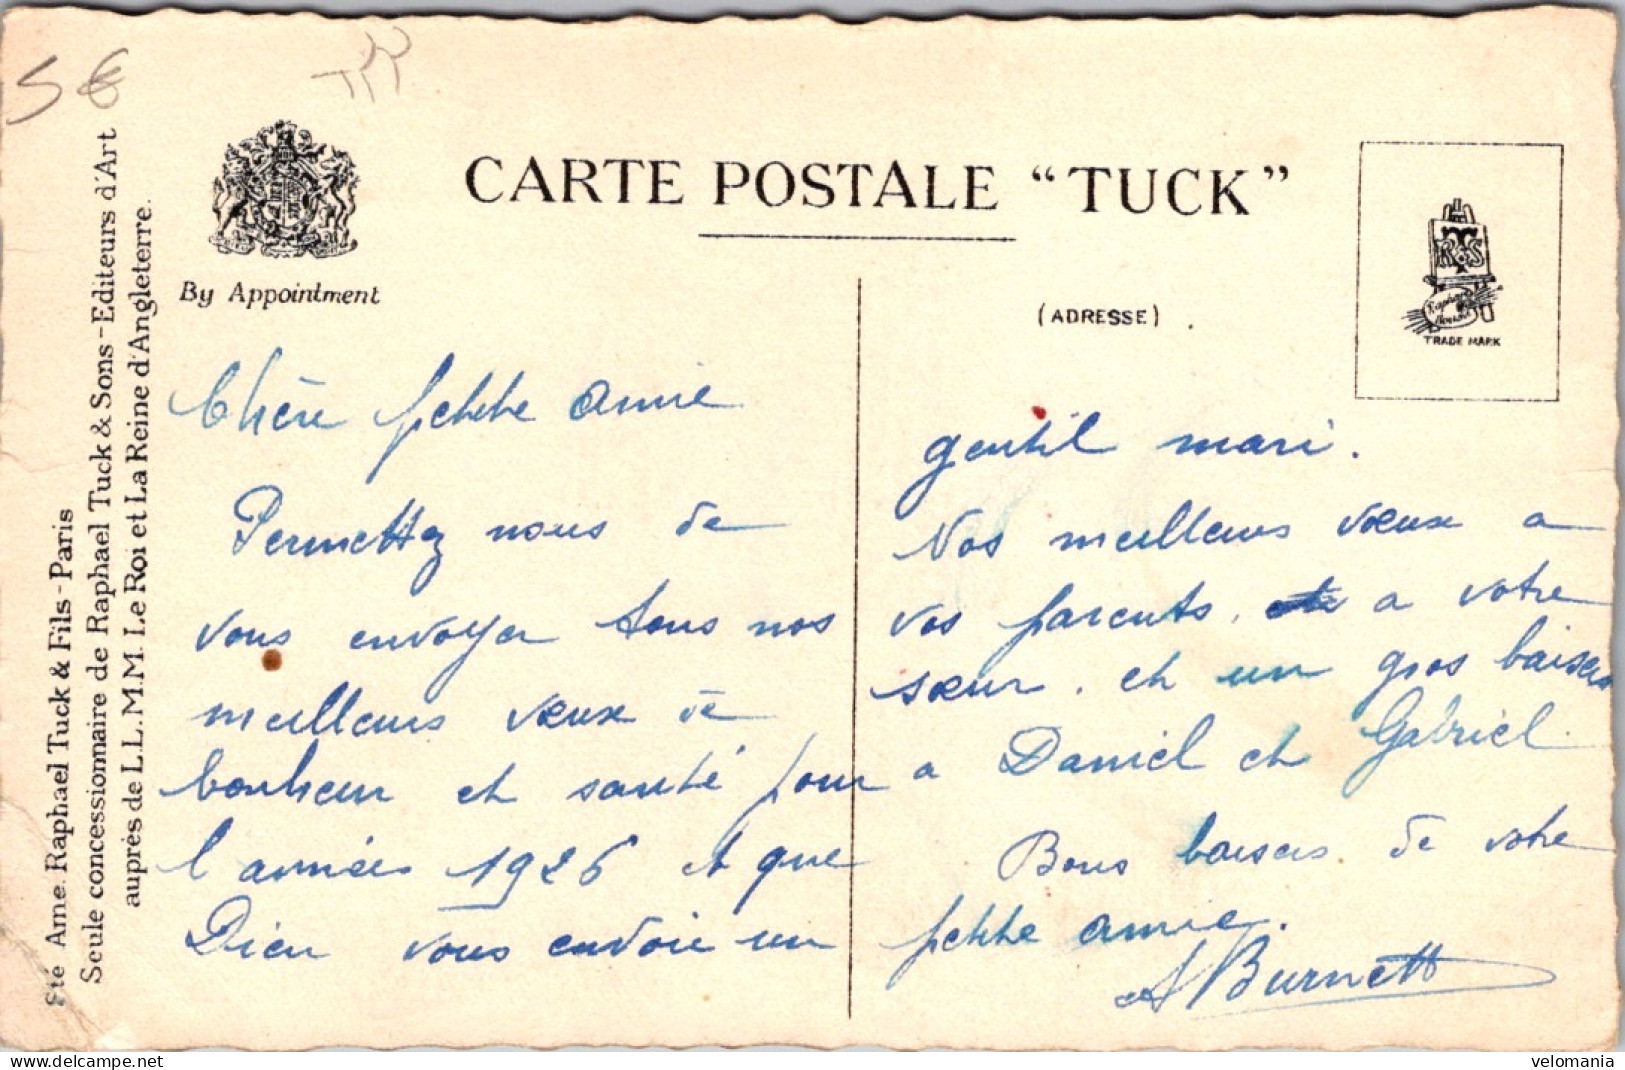 5 €
CARTE POSTALE “TUCK”
By Appointment
(ADRESSE)
R&S
TRADE MARK
Sté Ame. Raphael Tuck & Fils - Paris
Seule concessionnaire de Raphael Tuck & Sons - Editeurs d'Art
auprès de L.L. M.M. Le Roi et La Reine d'Angleterre.
Chère petite amie
Permettez nous de
vous envoyer tous nos
meilleurs vœux de
bonheur et santé pour
l'année 1926 et que
Dieu vous envoie un
gentil mari.
Nos meilleurs vœux a
vos parents, a votre
sœur, et un gros baisers
a Daniel et Gabriel.
Bons baisers de votre
petite amie.
A Burnett
delcampe.net
velomania